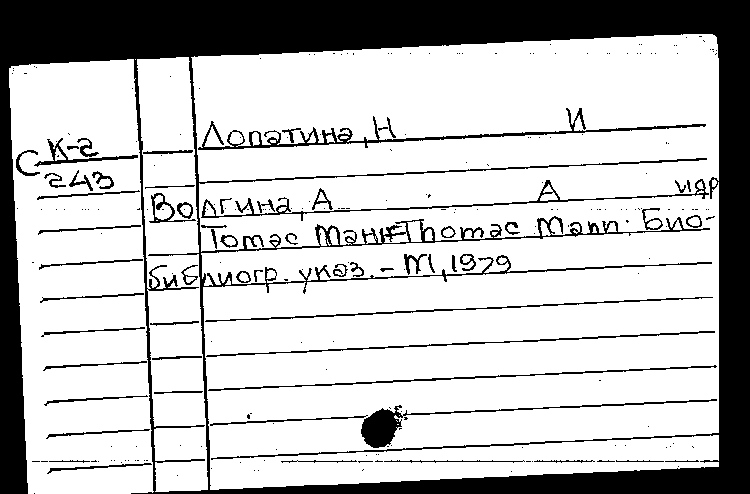 Лопатина, Н И
С К-2
243
Волгина, А А и др
Томас Манн=Thomas Mann: Био-
библиогр. указ. - М, 1979